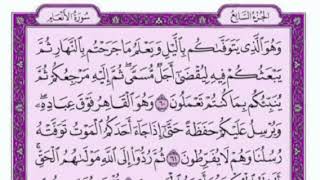 الجزء السابع سورة الأنعام
وَهُوَ ٱلَّذِى يَتَوَفَّىٰكُم بِٱلَّيْلِ وَيَعْلَمُ مَا جَرَحْتُم بِٱلنَّهَارِ ثُمَّ
يَبْعَثُكُمْ فِيهِ لِيُقْضَىٰٓ أَجَلٌ مُّسَمًّى ثُمَّ إِلَيْهِ مَرْجِعُكُمْ ثُمَّ
يُنَبِّئُكُم بِمَا كُنتُمْ تَعْمَلُونَ ٦٠ وَهُوَ ٱلْقَاهِرُ فَوْقَ عِبَادِهِۦ
وَيُرْسِلُ عَلَيْكُمْ حَفَظَةً حَتَّىٰٓ إِذَا جَآءَ أَحَدَكُمُ ٱلْمَوْتُ تَوَفَّتْهُ
رُسُلُنَا وَهُمْ لَا يُفَرِّطُونَ ٦١ ثُمَّ رُدُّوٓا۟ إِلَى ٱللَّهِ مَوْلَىٰهُمُ ٱلْحَقِّ